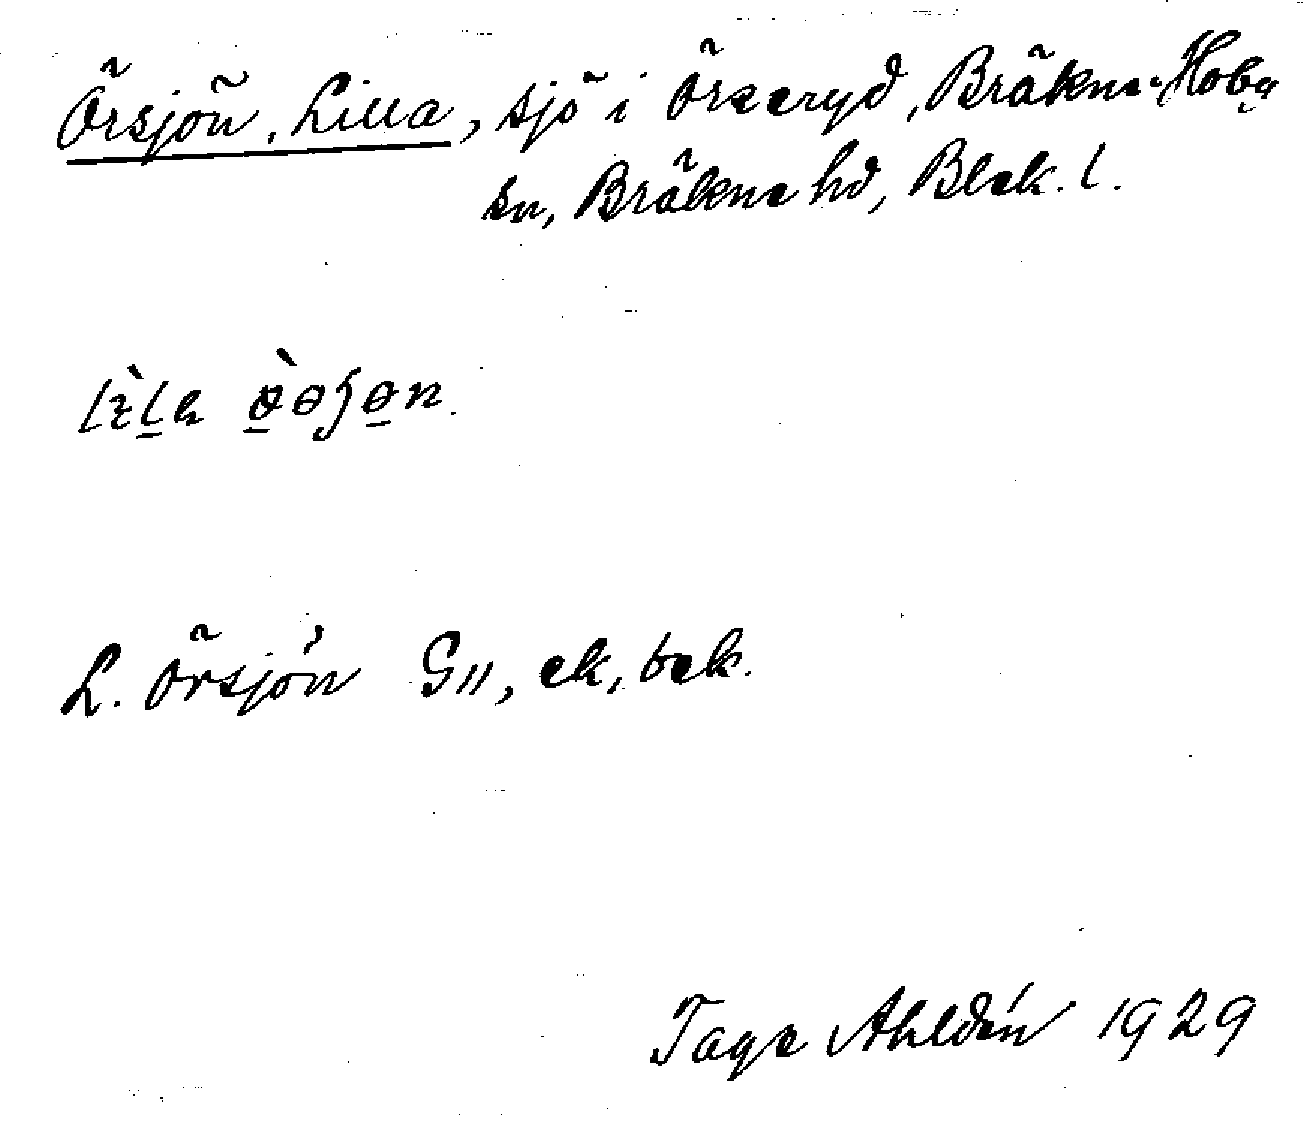 Örsjön, Lilla, sjö i Örseryd, Bräkne-Hoby
sn, Bräkne hd, Blek. l.
L. Örsjön G11, ek, bek.
Tage Ahldén 1929